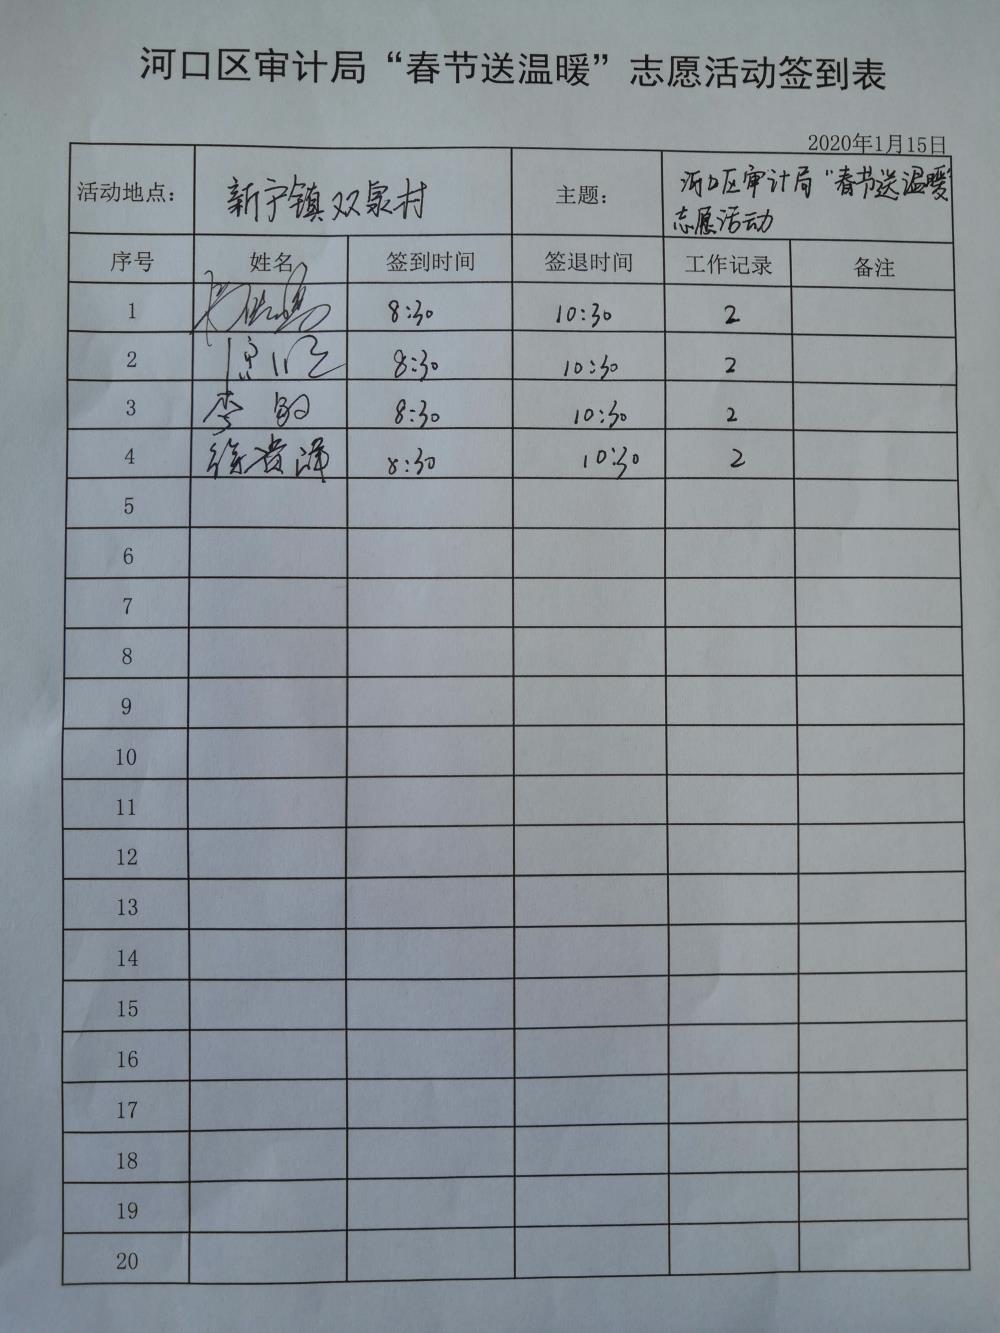 河口区审计局“春节送温暖”志愿活动签到表
2020年1月15日
活动地点： 新宁镇双泉村 主题： 河口区审计局“春节送温暖”
志愿活动
序号 姓名 签到时间 签退时间 工作记录 备注
1 8:30 10:30 2
2 8:30 10:30 2
3 李敏 8:30 10:30 2
4 徐贵泽 8:30 10:30 2
5
6
7
8
9
10
11
12
13
14
15
16
17
18
19
20